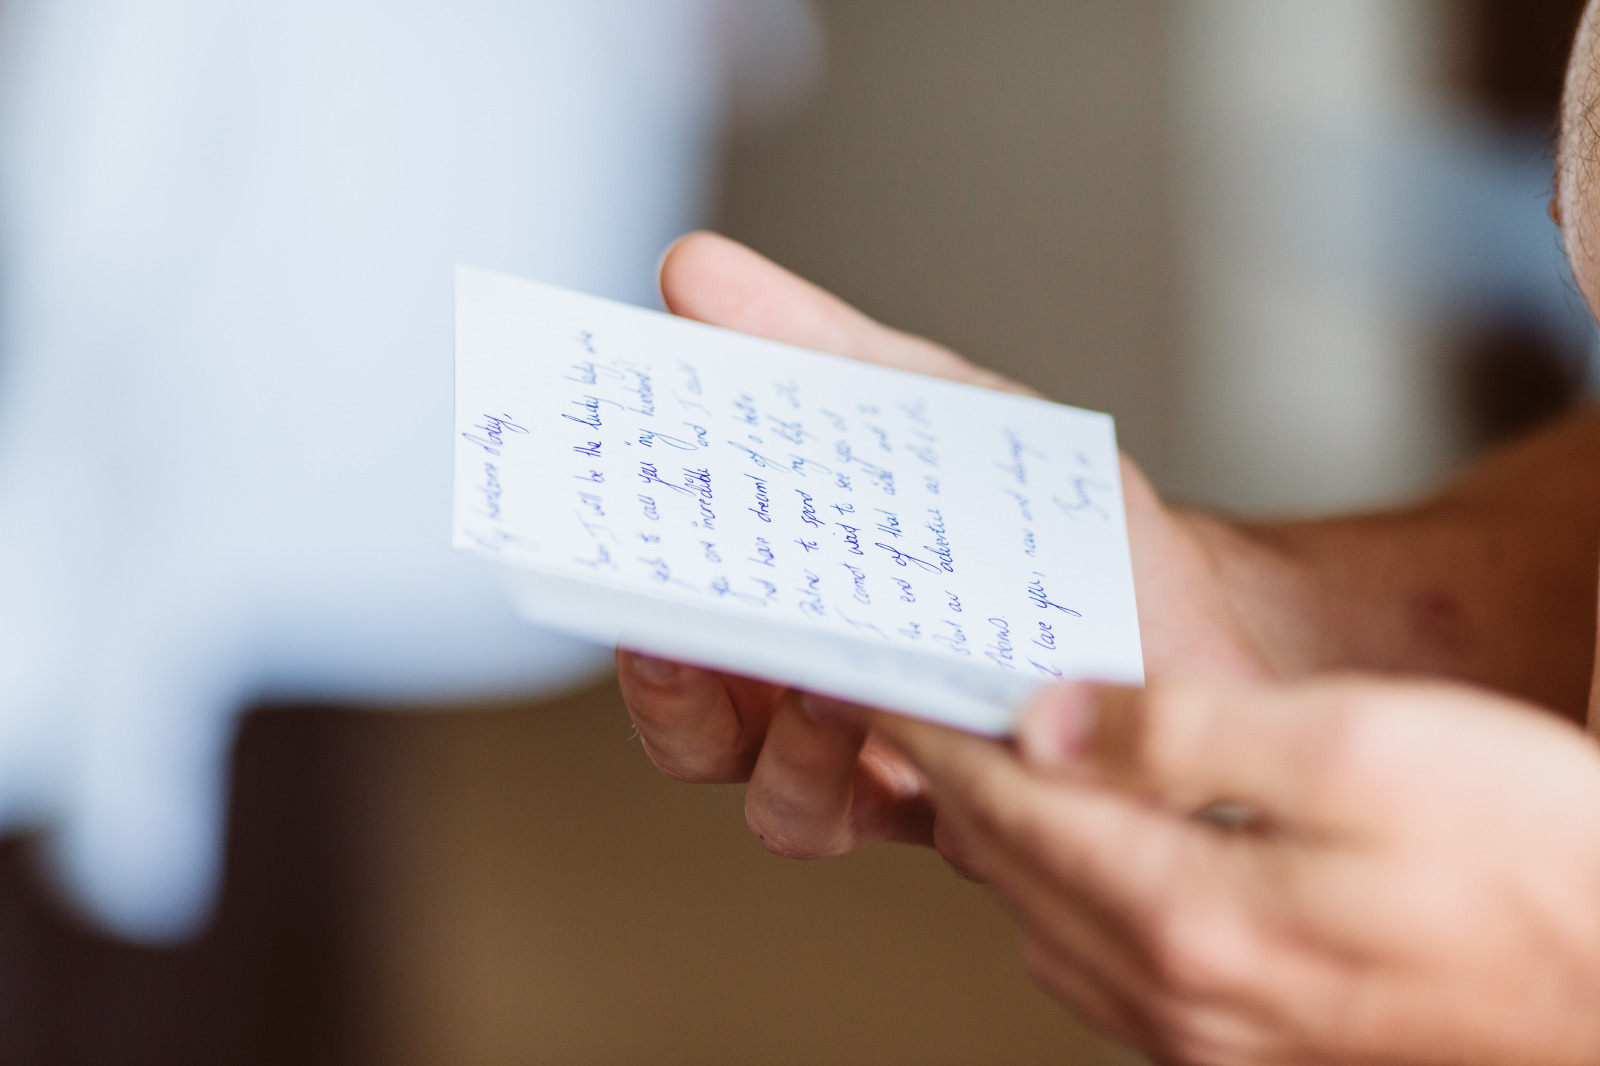 My handsome
Soon I will be the lucky lady who
gets to call you my husband.
you are incredible and I could
not have dreamt of a better
Partner to spend my life with
I cannot wait to see you at
the end of that aisle and to
start our adventure as Mr & Mrs
I love you, now and always